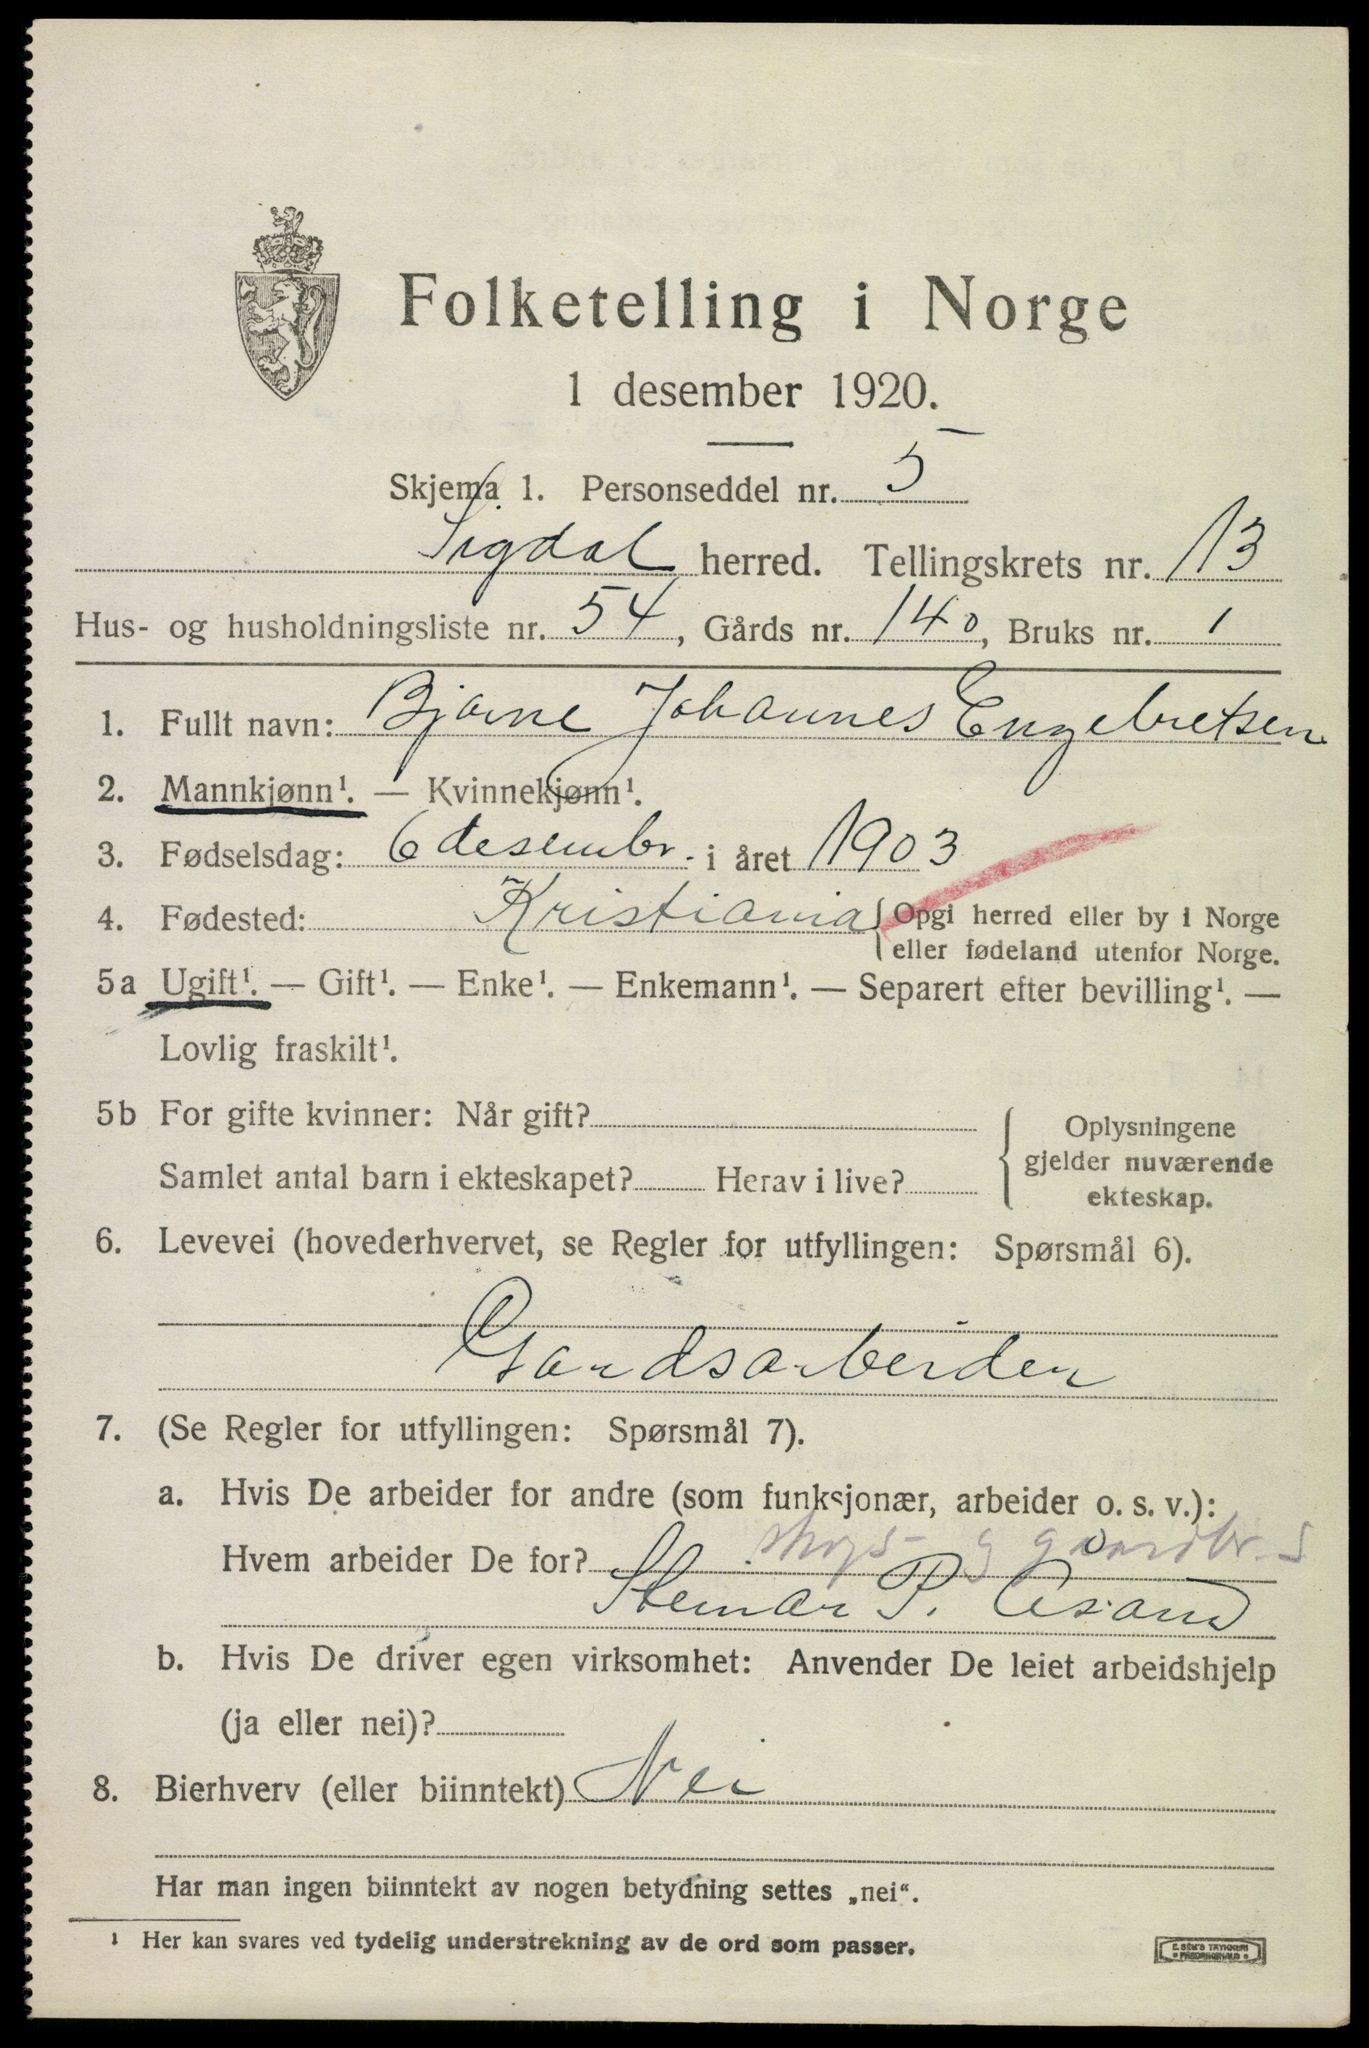 Folketelling i Norge
1 desember 1920.
Skjema 1. Personseddel nr. 5
Sigdal herred. Tellingskrets nr. 13
Hus- og husholdningsliste nr. 54, Gårds nr. 140, Bruks nr. 1
1. Fullt navn: Bjarne Johannes Engebretsen
2. Mannkjønn¹. — Kvinnekjønn¹.
3. Fødselsdag: 6 desembr. i året 1903
4. Fødested: Kristiania { Opgi herred eller by i Norge
eller fødeland utenfor Norge.
5a Ugift¹. — Gift¹. — Enke¹. — Enkemann¹. — Separert efter bevilling¹. —
Lovlig fraskilt¹.
5b For gifte kvinner: Når gift?
Samlet antal barn i ekteskapet? Herav i live?
Oplysningene
gjelder nuværende
ekteskap.
6. Levevei (hovederhvervet, se Regler for utfyllingen: Spørsmål 6).
Gardsarbeider
7. (Se Regler for utfyllingen: Spørsmål 7).
a. Hvis De arbeider for andre (som funksjonær, arbeider o. s. v.):
Hvem arbeider De for? skogs- g gaardbr. s
Steinar P. Aasand
b. Hvis De driver egen virksomhet: Anvender De leiet arbeidshjelp
(ja eller nei)?
8. Bierhverv (eller biinntekt) Nei
Har man ingen biinntekt av nogen betydning settes „nei“.
¹ Her kan svares ved tydelig understrekning av de ord som passer.
E. SEM'S TRYKKERI
FREDRIKSHALD